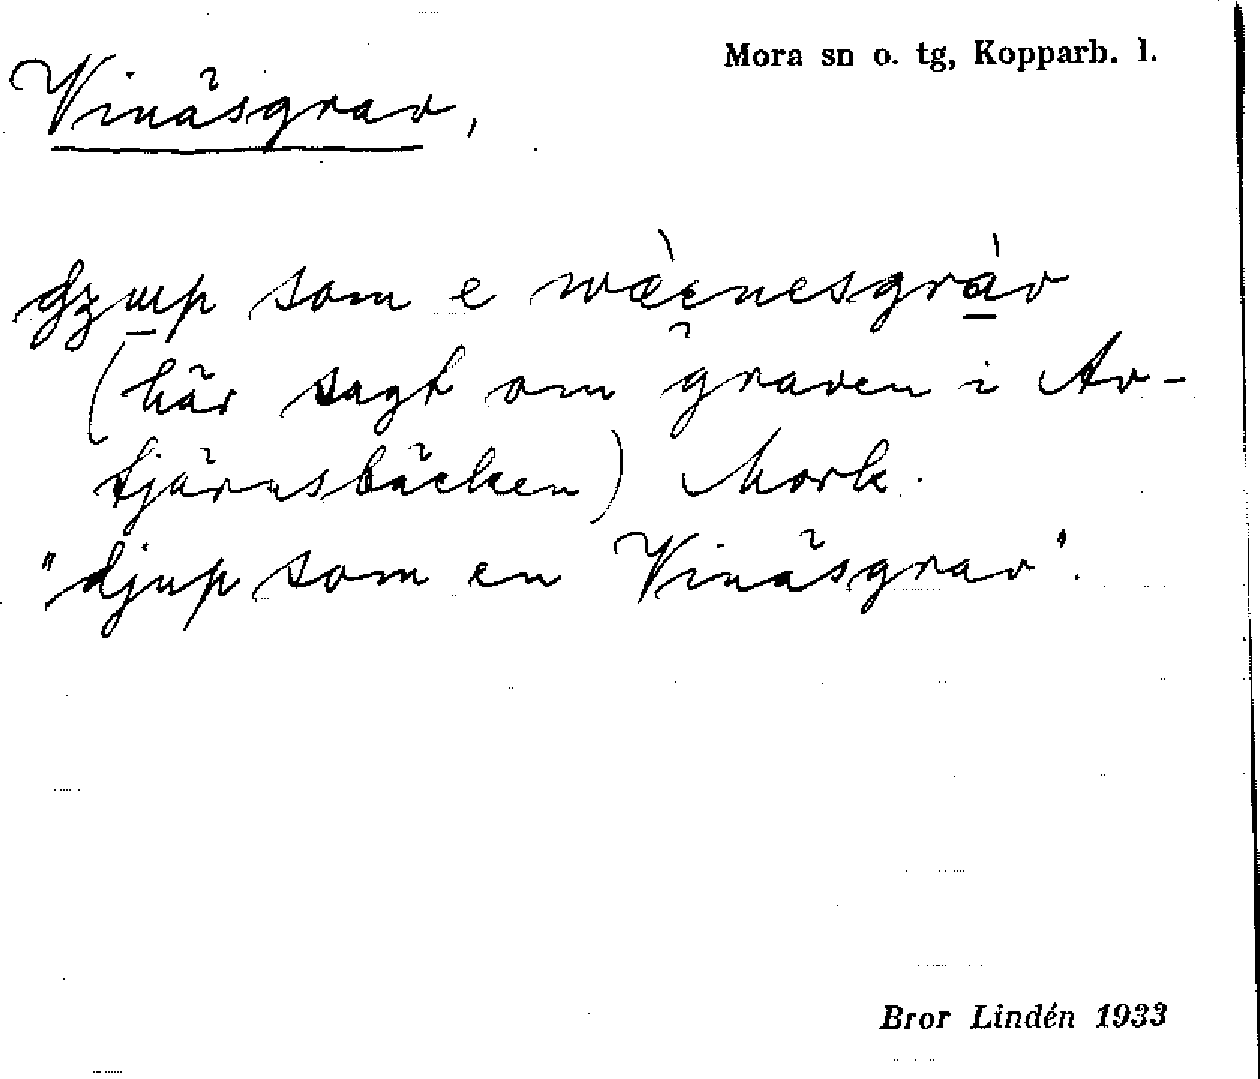 Mora sn o. tg, Kopparb. l.
Vinäsgrav,
som e
(här sagt om graven i Av-
tjärnsbäcken) Mork.
"djup som en Vinäsgrav".
Bror Lindén 1933